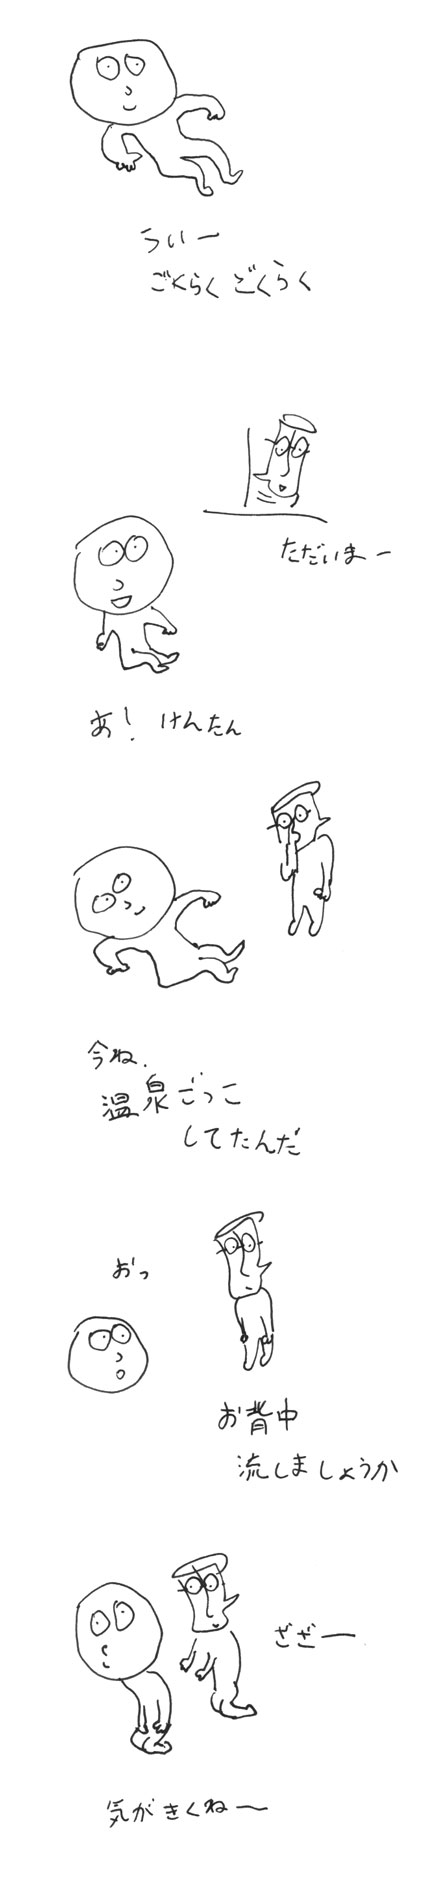 うぃー
ごくらく ごくらく
ただいまー
あ! けんたん
今ね、
温泉ごっこ
してたんだ
おっ
お背中
流しましょうか
ざざー
気がきくね〜